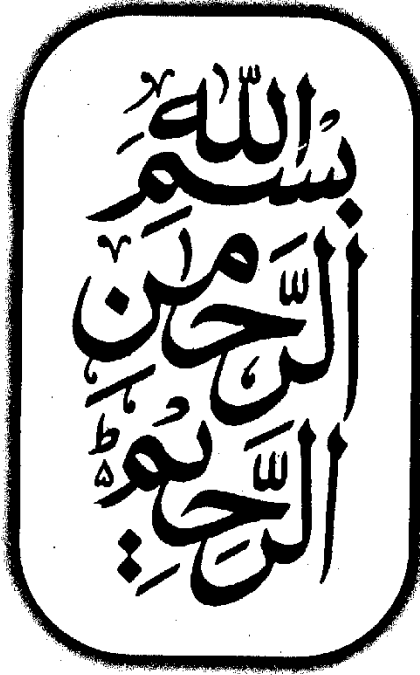 بِسْمِ اللّٰهِ
الرَّحْمٰنِ
الرَّحِيْمِ ط